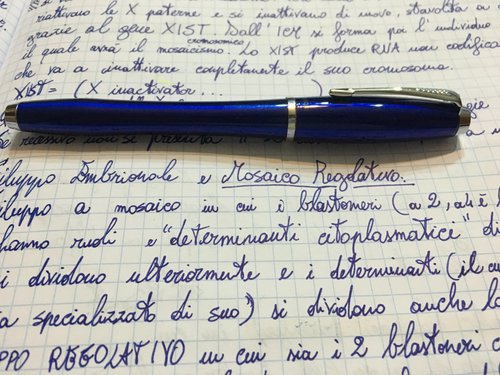 riattivano le X paterne e si inattivano di nuovo, stavolta a
grazie al gene XIST. Dall' ICM si forma poi l'individuo
il quale avrà il mosaicismo cromosomico. Lo XIST produce RNA non codifica
che va a inattivare completamente il suo cromosoma.
XIST = (X inactivator ... )
recessivo non si presenta
iluppo Embrionale e Mosaico Regolativo.
iluppo a mosaico in cui i blastomeri (a 2, ah è l
hanno ruoli e "determinanti citoplasmatice" di
i dividono ulteriormente e i determinanti (il cu
a specializzato di suo) si dividono anche l
PPO REGOLATIVO in cui sia i 2 blastomeri c